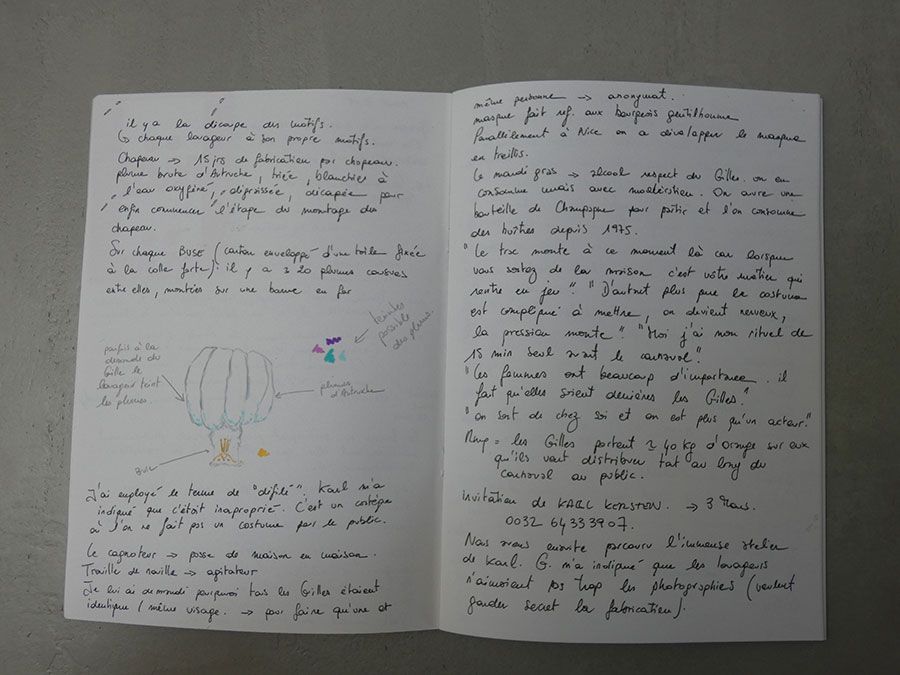 il y a la découpe des motifs.
↳ chaque louageur à son propre motifs.
Chapeau → 15 jrs de fabrication par chapeau.
plume brute d'Autruche, triée, blanchies à
l'eau oxygéné, dégraissée, décapée pour
enfin commencer l'étape du montage du
chapeau.
Sur chaque BUSE (carton enveloppé d'une toile fixée
à la colle forte) : il y a ± 20 plumes cousues
entre elles, montées sur une barre en fer
teintes
possible
des plumes.
parfois à la
demande du
Gille le
louageur teint
les plumes.
plumes
d'Autruche
Buse
J'ai employé le terme de "défilé", Karl m'a
indiqué que c'était inaproprié. C'est un cortège
où l'on ne fait pas un costume par le public.
Le cagnoteur → passe de maison en maison.
Trouille de nouille → agitateur
Je lui ai demandé pourquoi tous les Gilles étaient
identique / même visage. → pour faire qu'une et
même personne → anonymat.
masque fait ref. aux bourgeois gentilhomme
Parallèlement à Nice on a développer le masque
en treillis.
Le mardi gras → alcool respect du Gilles. on en
consomme mais avec modération. On ouvre une
bouteille de Champagne pour partir et l'on consomme
des huîtres depuis 1975.
"Le trac monte à ce moment là car lorsque
vous sortez de la maison c'est votre métier qui
rentre en jeu". "D'autant plus que le costume
est compliqué à mettre, on devient nerveux,
la pression monte" "Moi j'ai mon rituel de
15 min seul avant le carnaval".
"Les femmes ont beaucoup d'importance. il
faut qu'elles soient derrières les Gilles."
"on sort de chez soi et on est plus qu'un acteur."
Rmq = les Gilles portent ≈ 40 kg d'orange sur eux
qu'ils vont distribuer tout au long du
carnaval au public.
invitation de KARL KERSTEN. → 3 Mars.
0032 64333907.
Nous avons ensuite parcouru l'immense atelier
de Karl. G. m'a indiqué que les louageurs
n'aimaient pas trop les photographies (veulent
garder secret la fabrication).